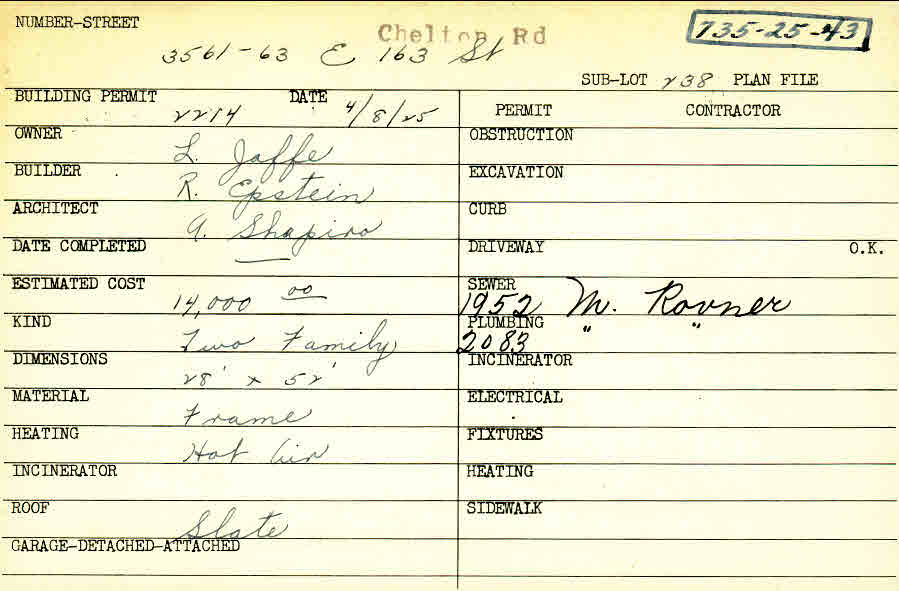 NUMBER-STREET
Chelton Rd
735-25-43
3561-63 E 163 St
SUB-LOT 238 PLAN FILE
BUILDING PERMIT DATE PERMIT CONTRACTOR
2214 4/8/25
OWNER L. Jaffe OBSTRUCTION
BUILDER R. Epstein EXCAVATION
ARCHITECT A. Shapiro CURB
DATE COMPLETED — DRIVEWAY O.K.
ESTIMATED COST 14,000 00 SEWER 1952 M. Rovner
KIND Two Family PLUMBING 2083 " "
DIMENSIONS 28' x 52' INCINERATOR
MATERIAL Frame ELECTRICAL
HEATING Hot Air FIXTURES
INCINERATOR HEATING
ROOF Slate SIDEWALK
GARAGE-DETACHED-ATTACHED